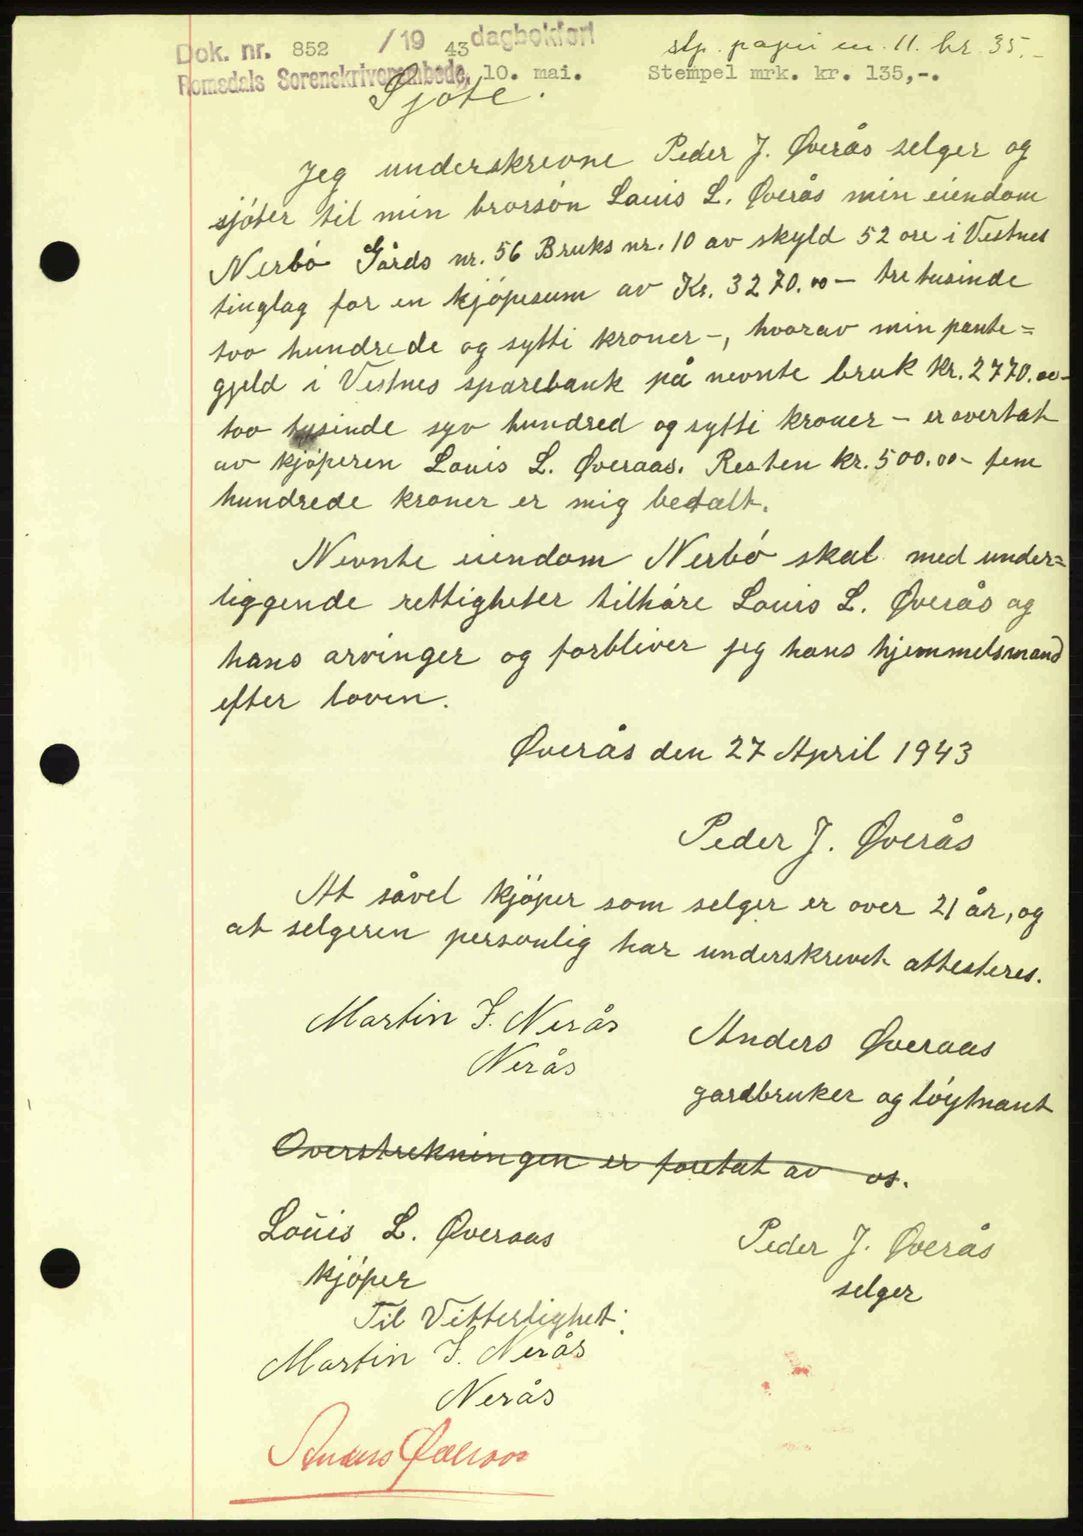 Dok. nr. 852 /19 43 dagbokført stp. papir en. 11. kr. 35.-
Romsdals Sorenskriverembede, 10. mai. Stempel mrk. kr. 135,-.
Sjöte.
Jeg underskrevne Peder J. Øverås selger og
sjöter til min brorsön Louis L. Øverås min eiendom
Nerbö Gårds nr. 56 Bruks nr. 10 av skyld 52 öre i Vestnes
tinglag for en kjöpesum av Kr. 3270.00 - tre tusinde
too hundrede og sytti kroner -, hvorav min pante=
gjeld i Vestnes sparebank på nevnte bruk kr. 2770.00-
too tusinde syv hundred og sytti kroner - er overtat
av kjöperen Louis L. Øveraas. Resten kr. 500.00- fem
hundrede kroner er mig betalt.
Nevnte eiendom Nerbö skal med under=
liggende rettigheter tilhöre Louis L. Øverås og
hans arvinger og forbliver jeg hans hjemmelsmand
efter loven.
Øverås den 27 April 1943
Peder J. Øverås
At såvel kjöper som selger er over 21 år, og
at selgeren personlig har underskrevet attesteres.
Martin I. Nerås Anders Øveraas
Nerås
gardbruker og löytnant
Overstrekningen er foretat av os.
Louis L. Øveraas Peder J. Øverås
kjöper selger
Til Vitterlighet:
Martin I. Nerås
Nerås
Anders Øveraas